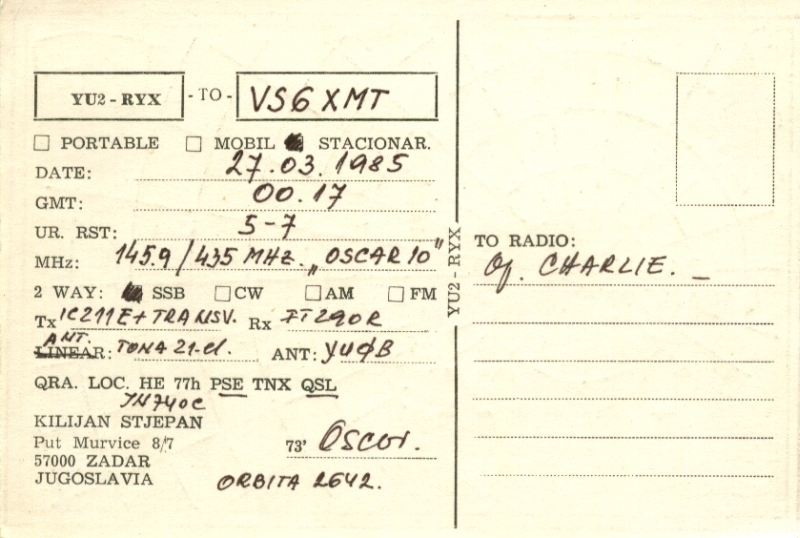 YU2 - RYX - TO - VS6XMT
PORTABLE MOBIL STACIONAR.
DATE: 27.03.1985
GMT: 00.17
UR. RST: 5-7
MHz: 145.9/435 MHZ. „OSCAR 10"
2 WAY: SSB CW AM FM
Tx IC211E+TRANSV. Rx FT290R
ANT.
LINEAR: TONA 21-el. ANT: YUØB
QRA. LOC. HE 77h PSE TNX QSL
JN74OC
KILIJAN STJEPAN
Put Murvice 8/7
57000 ZADAR
JUGOSLAVIA
73' Oscar.
ORBITA 2642.
YU2 - RYX
TO RADIO:
Op. CHARLIE. _